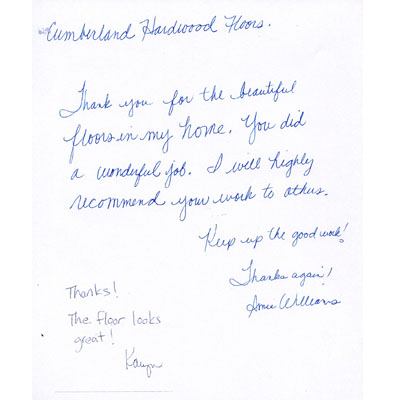 Cumberland Hardwood Floors.
Thank you for the beautiful
floors in my home. You did
a wonderful job. I will highly
recommend your work to others.
Keep up the good work!
Thanks again!
Williams
Thanks!
The floor looks
great!